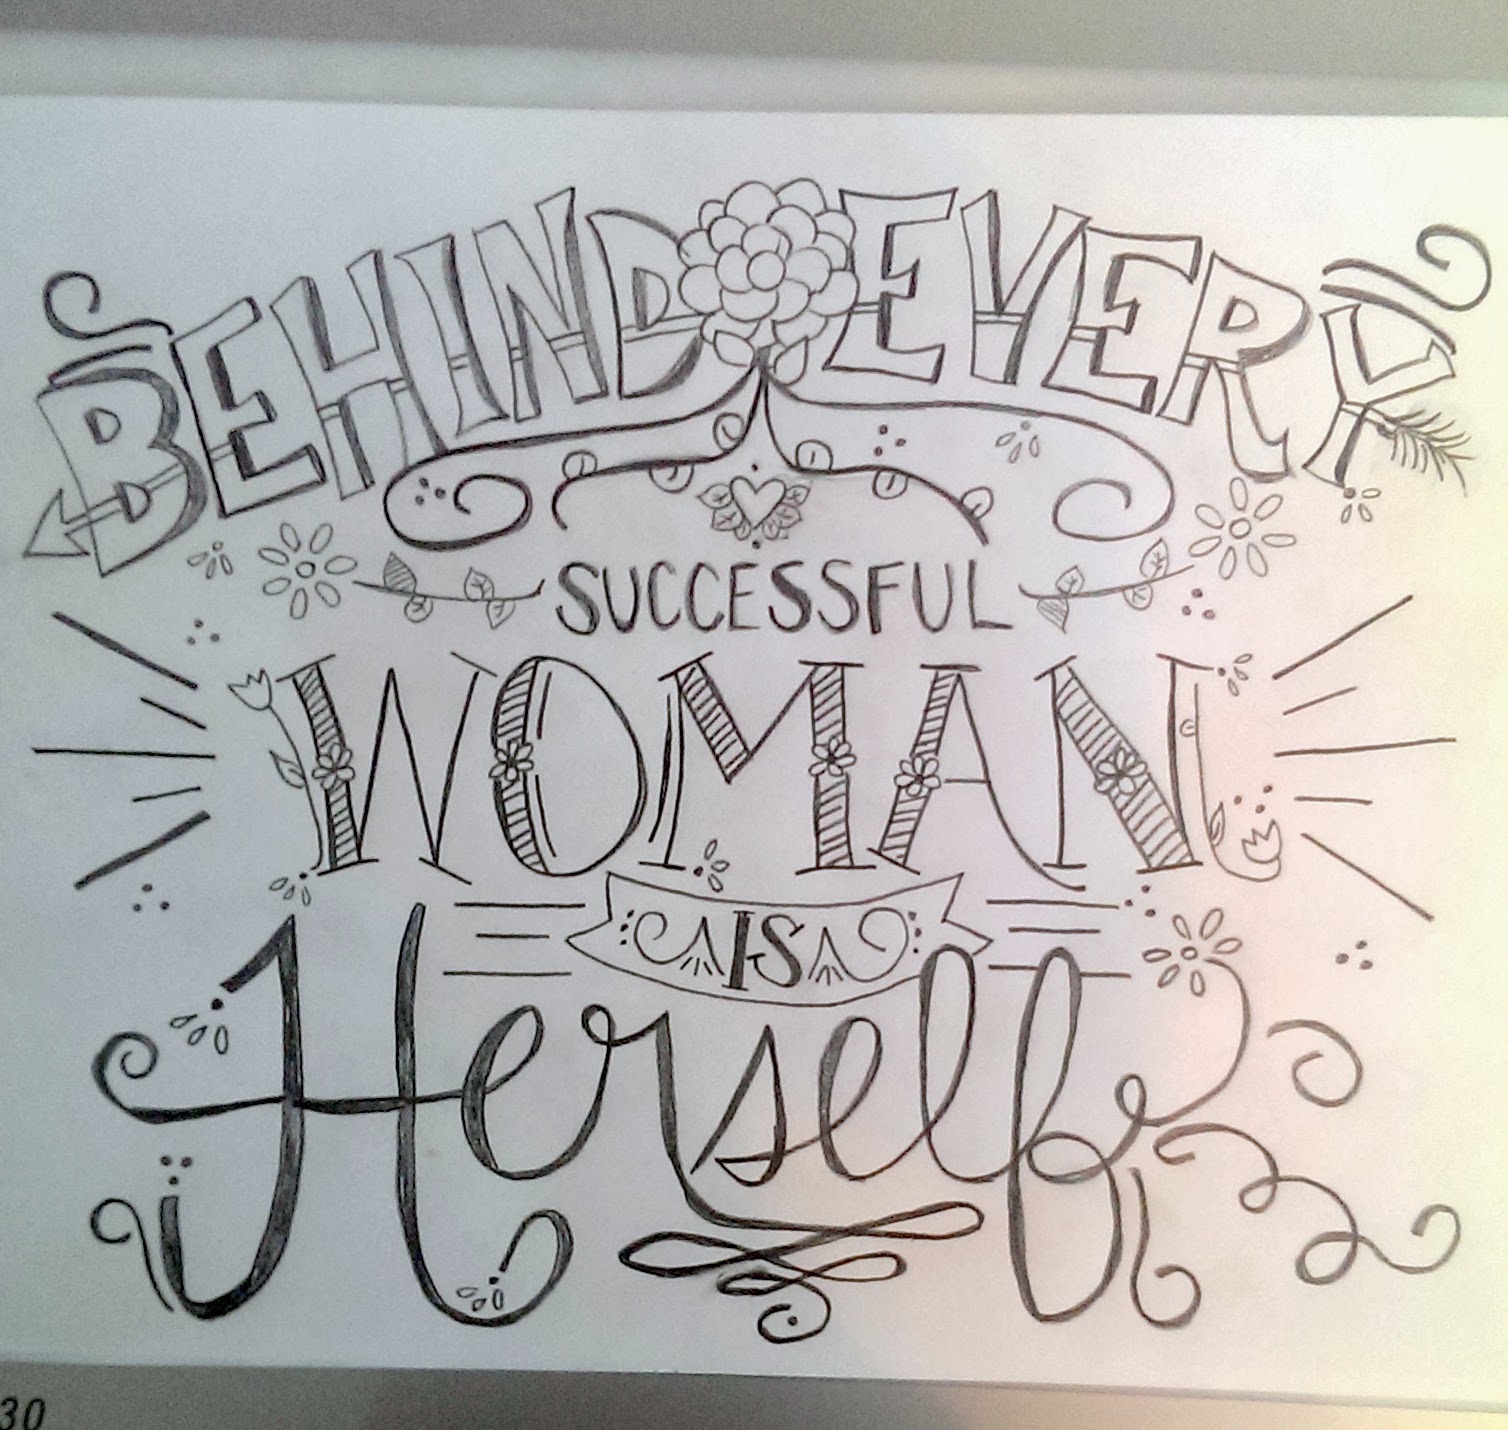 BEHIND EVERY
SUCCESSFUL
WOMAN
IS
Herself
30